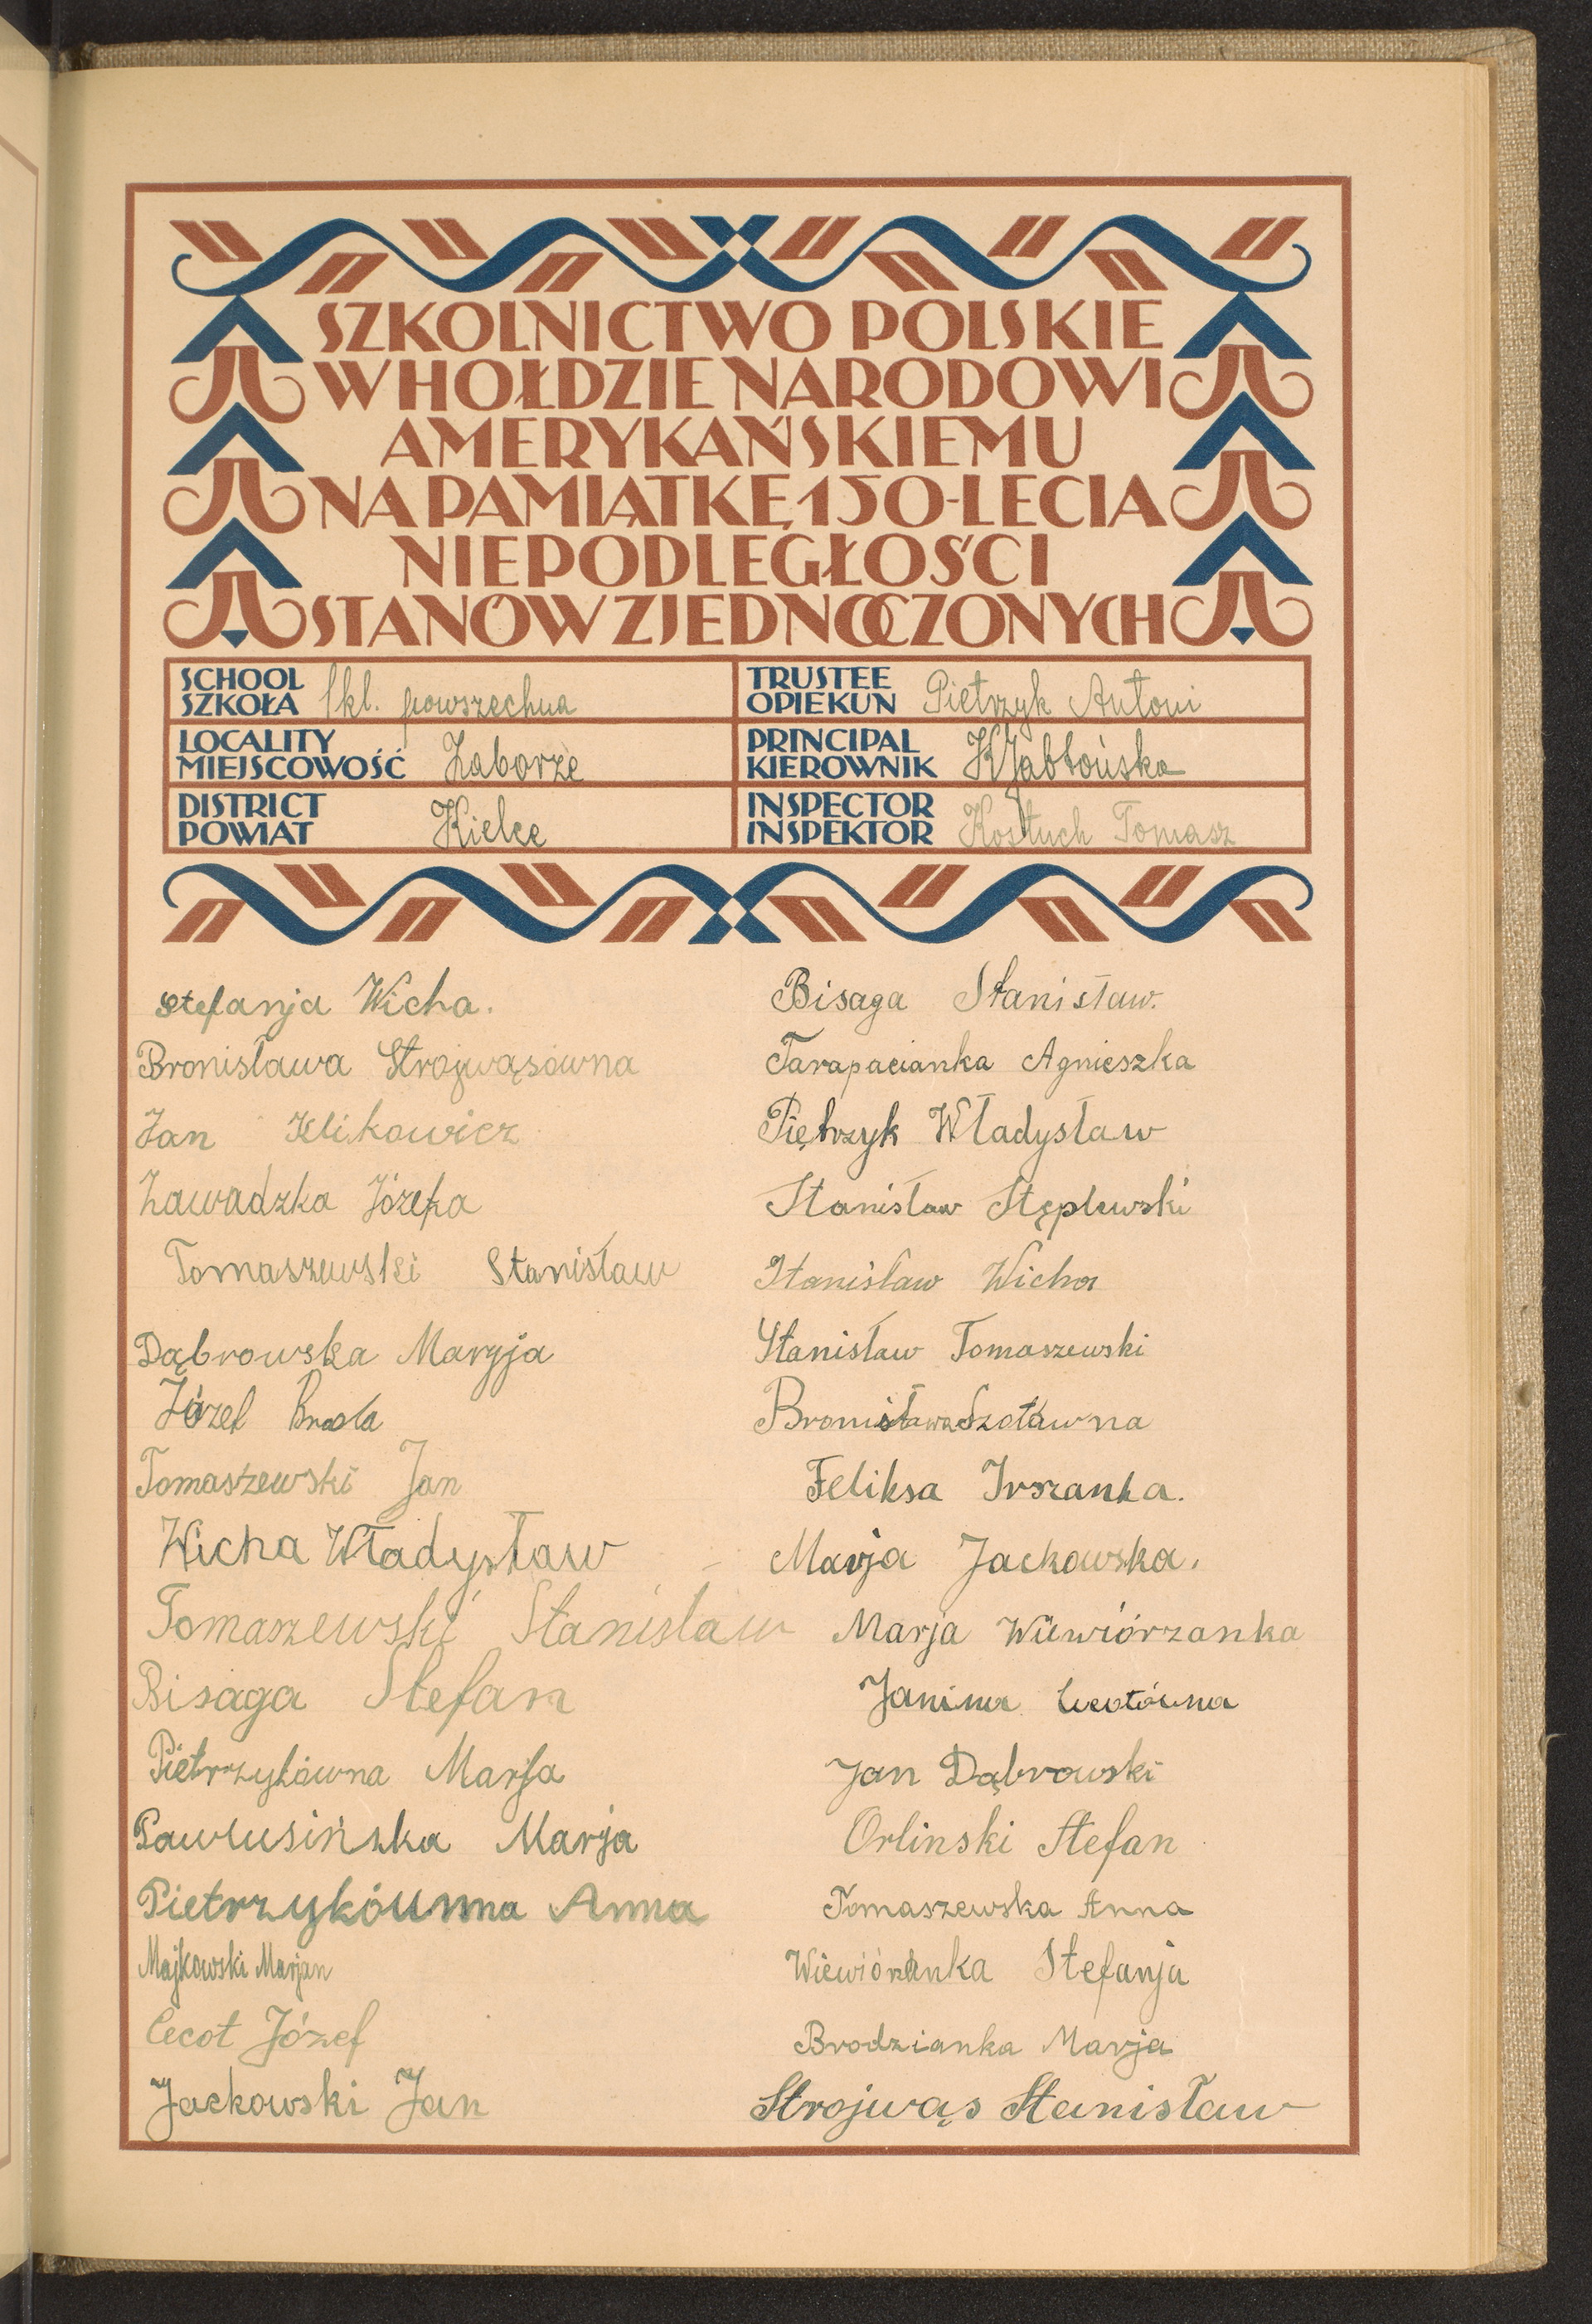 SZKOLNICTWO POLSKIE
W HOŁDZIE NARODOWI
AMERYKAŃSKIEMU
NA PAMIĄTKĘ 150-LECIA
NIEPODLEGŁOŚCI
STANÓW ZJEDNOCZONYCH
SCHOOL
SZKOŁA Szkl. powszechna
TRUSTEE
OPIEKUN Pietrzyk Antoni
LOCALITY
MIEJSCOWOŚĆ Zaborze
PRINCIPAL
KIEROWNIK KJabłońska
DISTRICT
POWIAT Kielce
INSPECTOR
INSPEKTOR Kostuch Tomasz
Stefanja Wicha.
Bronisława Strojwąsówna
Jan Klikowicz
Zawadzka Józefa
Tomaszewski Stanisław
Dąbrowska Maryja
Józef Broda
Tomaszewski Jan
Wicha Władysław
Tomaszewski Stanisław
Bisaga Stefan
Pietrzykówna Marja
Pawlusińska Marja
Pietrzykówna Anna
Majkowski Marjan
Cecot Józef
Jackowski Jan
Bisaga Stanisław.
Tarapacianka Agnieszka
Piętrzyk Władysław
Stanisław Stęplewski
Stanisław Wicha
Stanisław Tomaszewski
Bronisława Szotówna
Feliksa Irszanka.
Marja Jackowska.
Marja Wiewiórzanka
Janina Cecotówna
Jan Dąbrowski
Orlinski Stefan
Tomaszewska Anna
Wiewiórzanka Stefanja
Brodzianka Marja
Strojwąs Stanisław